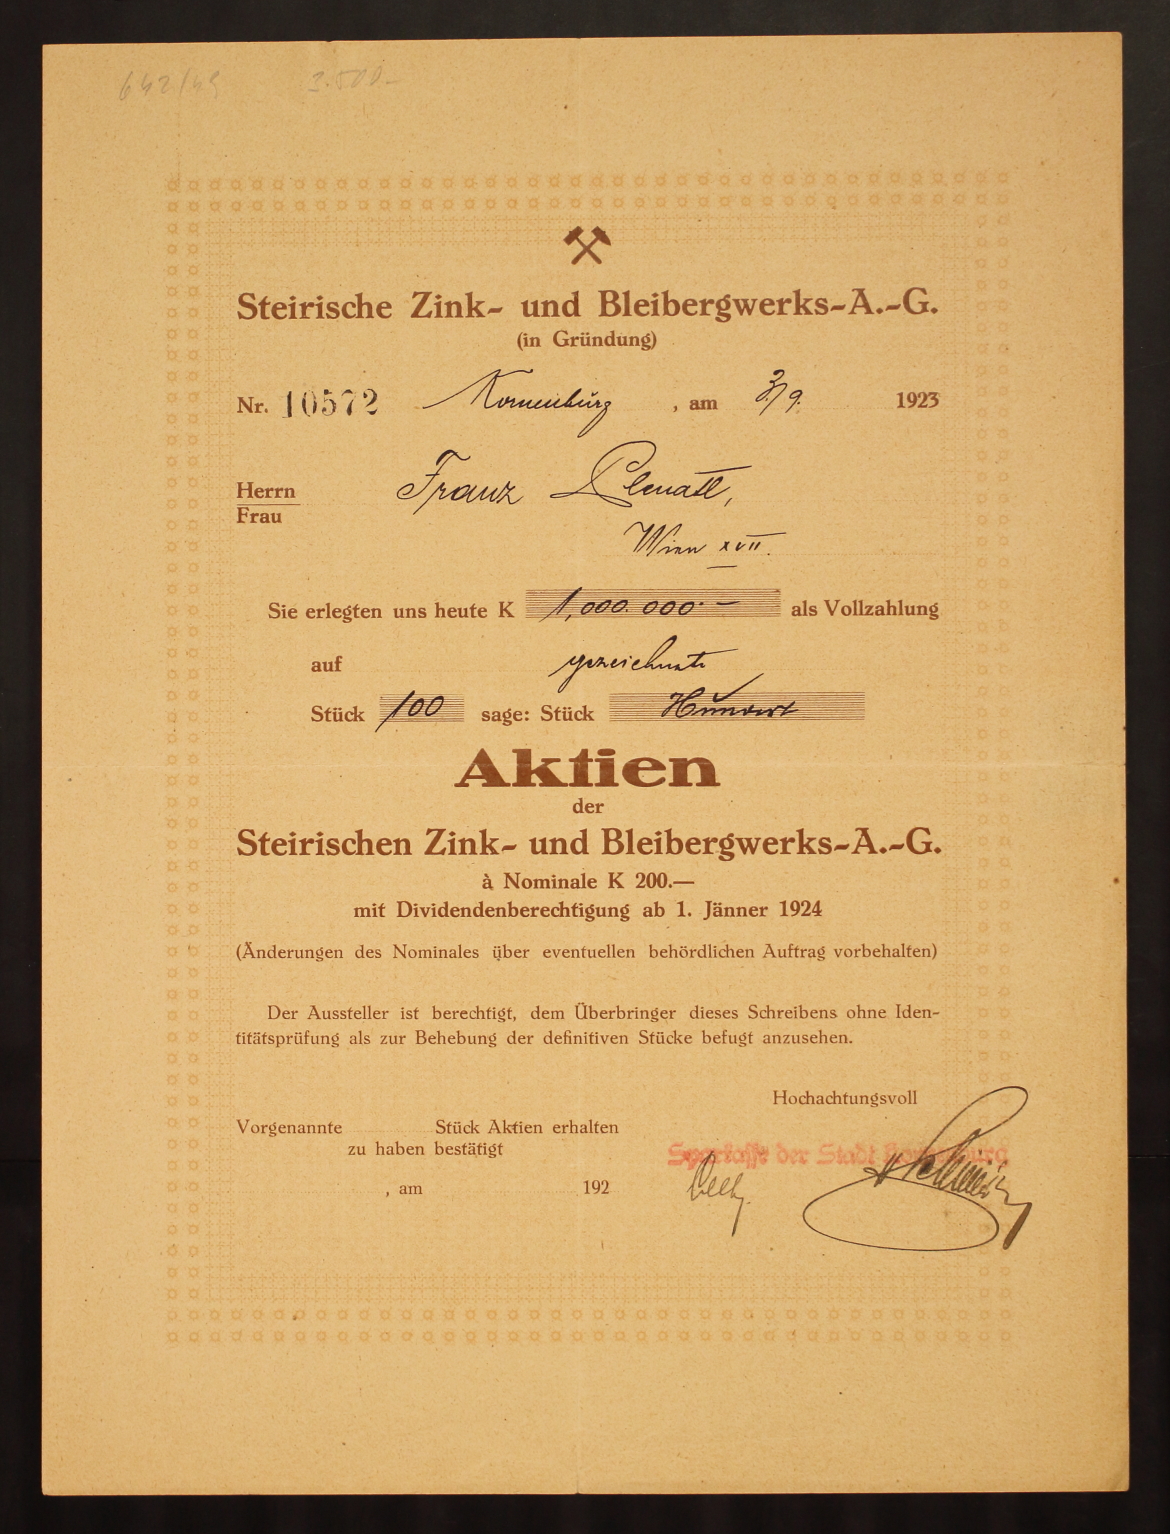 642/49 3.500–
Steirische Zink- und Bleibergwerks-A.-G.
(in Gründung)
Nr. 10572 Korneuburg , am 3/9. 1923
Herrn Franz
Frau
Wien XVII.
Sie erlegten uns heute K 1,000.000·– als Vollzahlung
auf gezeichnete
Stück 100 sage: Stück Hundert
Aktien
der
Steirischen Zink- und Bleibergwerks-A.-G.
à Nominale K 200.—
mit Dividendenberechtigung ab 1. Jänner 1924
(Änderungen des Nominales über eventuellen behördlichen Auftrag vorbehalten)
Der Aussteller ist berechtigt, dem Überbringer dieses Schreibens ohne Iden-
titätsprüfung als zur Behebung der definitiven Stücke befugt anzusehen.
Hochachtungsvoll
Vorgenannte Stück Aktien erhalten
zu haben bestätigt
Sparkasse der Stadt Korneuburg
, am 192